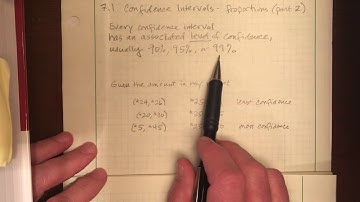 7.1 Confidence Intervals - Proportions (part 2)
Every confidence interval
has an associated level of confidence,
usually 90%, 95%, or 99%.
Guess the amount in my wallet
($24, $26) $25 least confidence
($20, $30) $25
($5, $45) most confidence